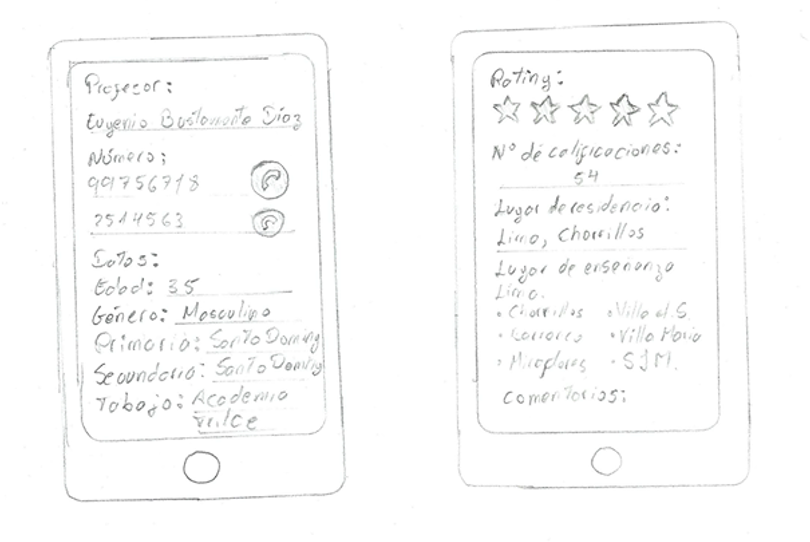 Profesor:
Eugenio Bustamante Díaz
Número:
991756718
2514563
Datos:
Edad: 35
Género: Masculino
Primaria: Santo Doming
Secundaria: Santo Doming
Tabajo: Academia
Trilce
Rating:
N° de calificaciones:
54
Lugar de residencia:
Lima, Chorrillos
Lugar de enseñanza
Lima.
• Chorrillos • Villa el S.
• Barranco • Villa Maria
• Miraflores • SJM.
Comentarios: